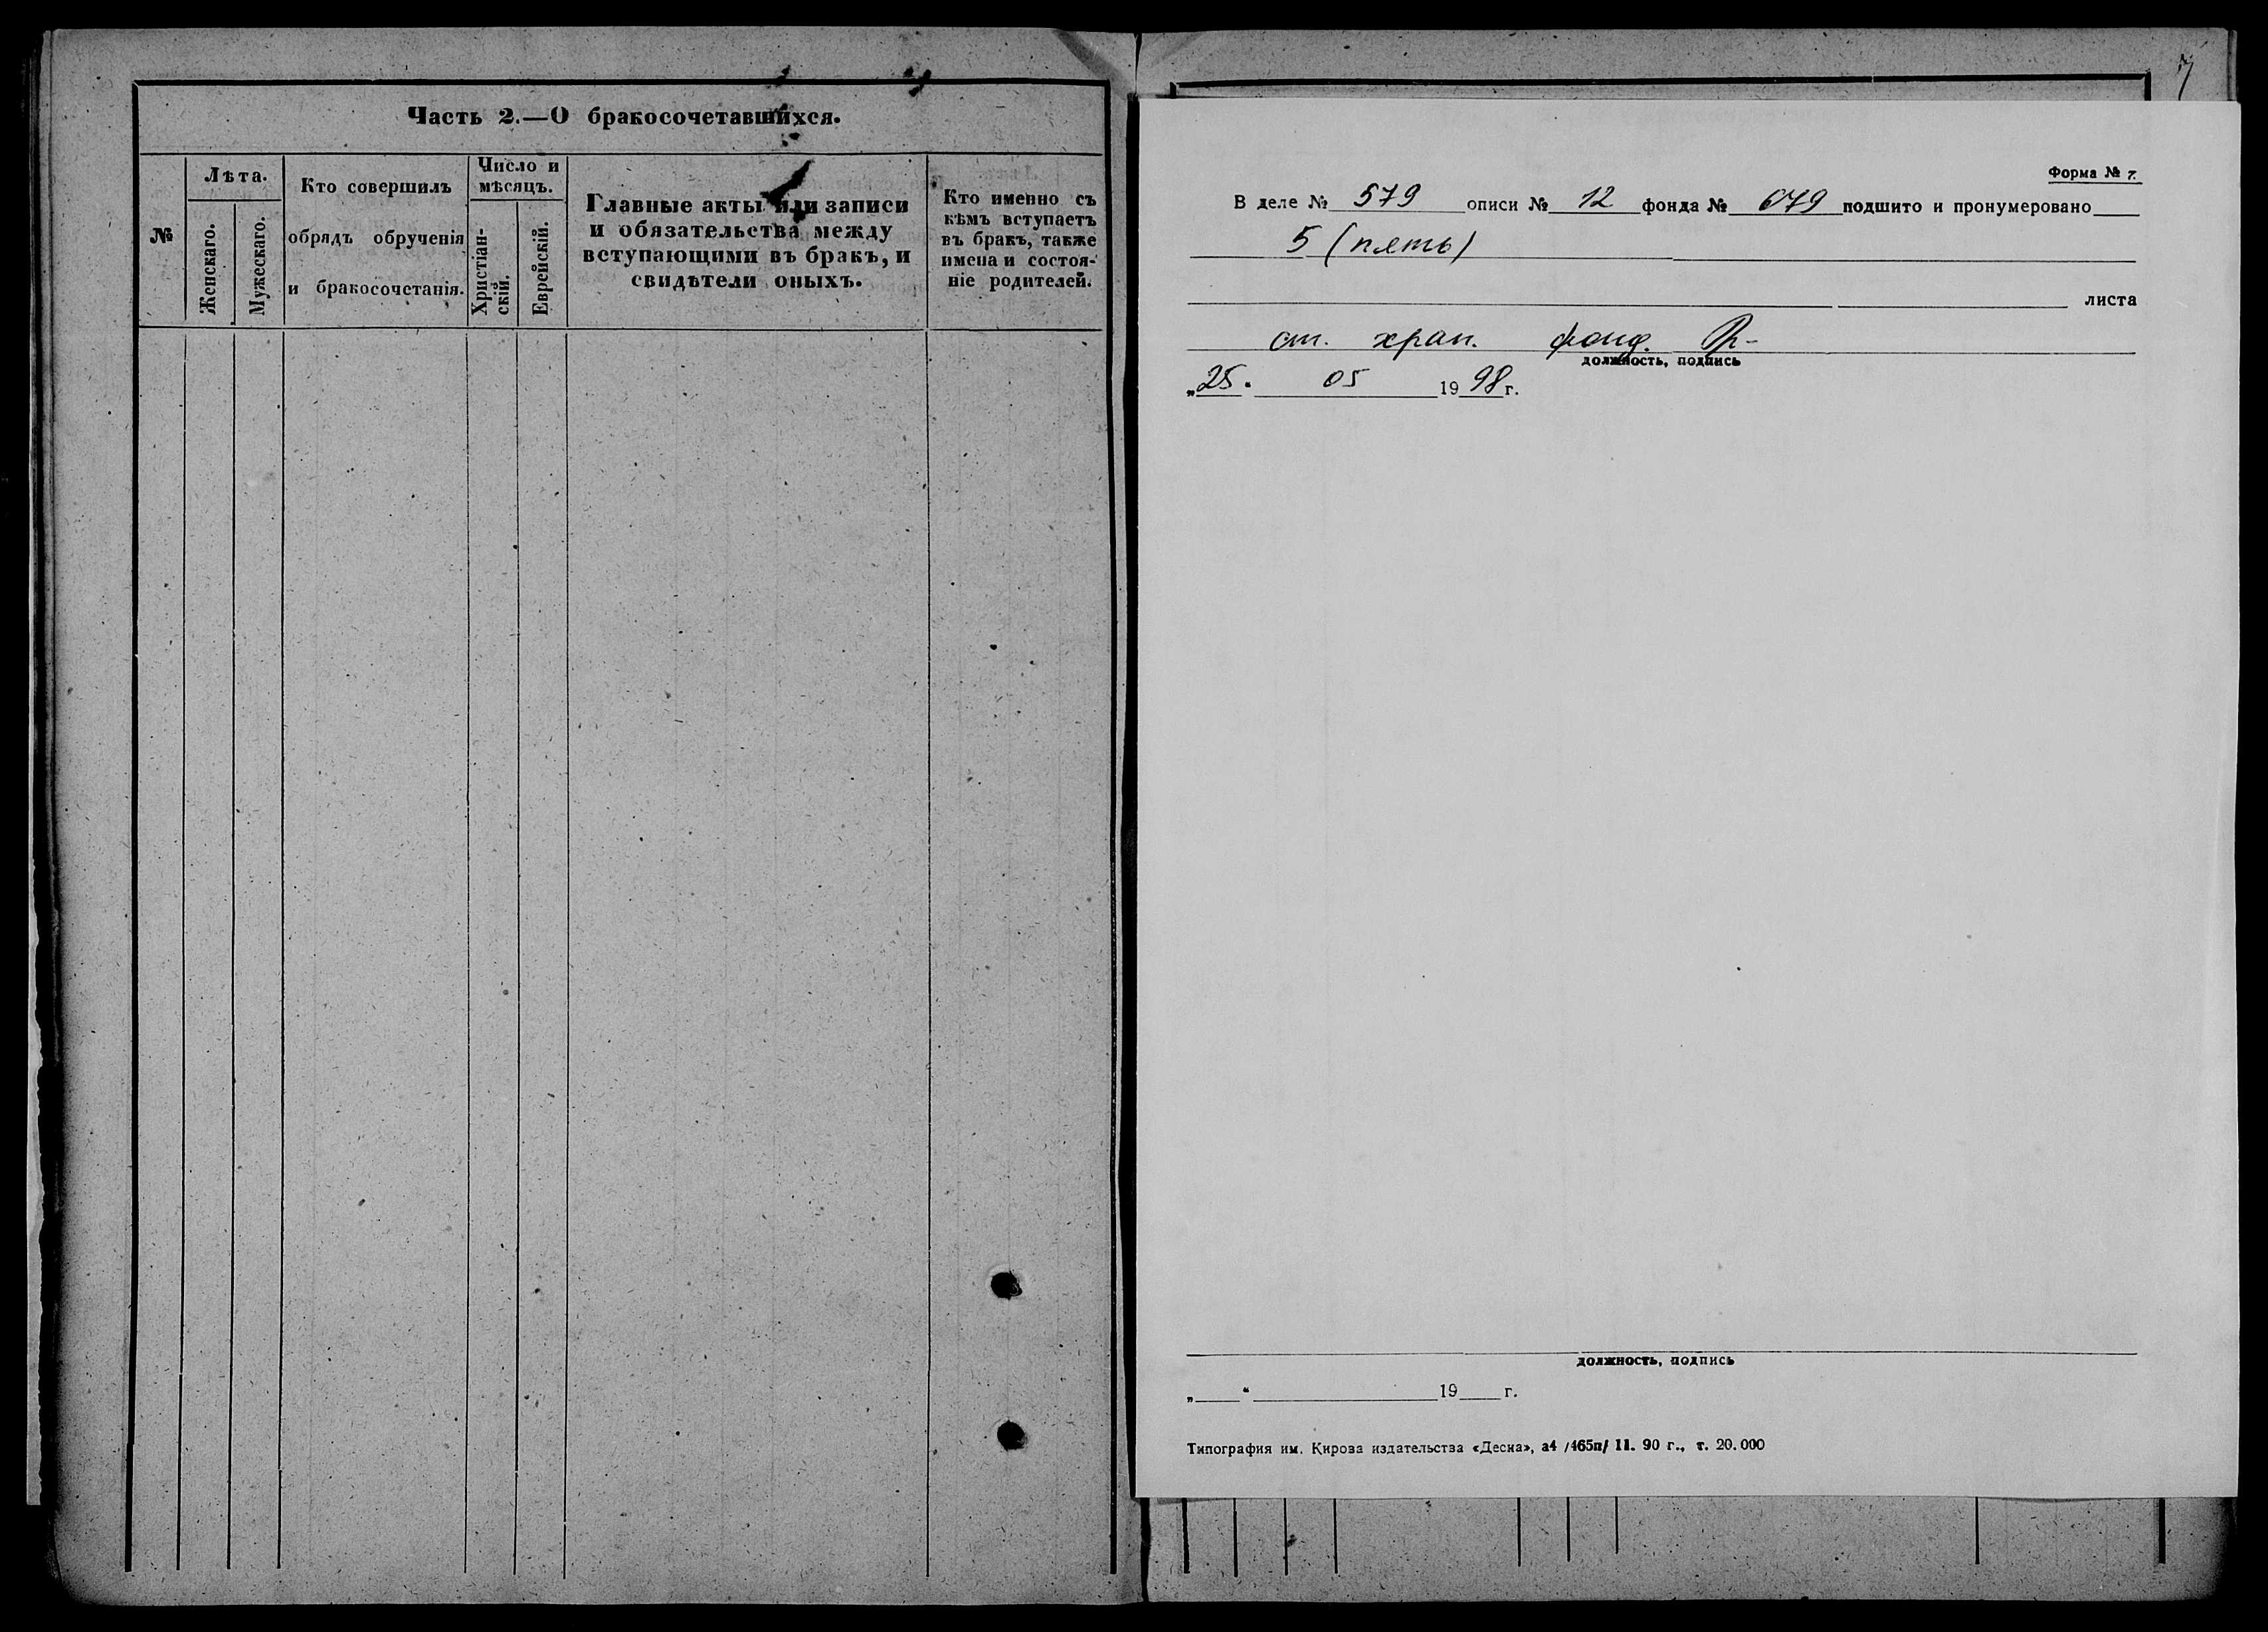 Часть 2.—О бракосочетавшихся.
№
Лѣта.
Женскаго.
Мужескаго.
Кто совершилъ
обрядъ обрученія
и бракосочетанія.
Число и
мѣсяцъ.
Христіан-
скій.
Еврейскій.
Главные акты или записи
и обязательства между
вступающими въ бракъ, и
свидѣтели оныхъ.
Кто именно съ
кѣмъ вступаетъ
въ бракъ, также
имена и состоя-
ніе родителей.
Форма № 7.
В деле № 579 описи № 12 фонда № 679 подшито и пронумеровано
5 (пять)
листа
ст. хран. фонд.
должность, подпись
„25. 05 1998 г.
должность, подпись
„ “ 19 г.
Типография им. Кирова издательства «Десна», а4 /465п/ 11. 90 г., т. 20.000